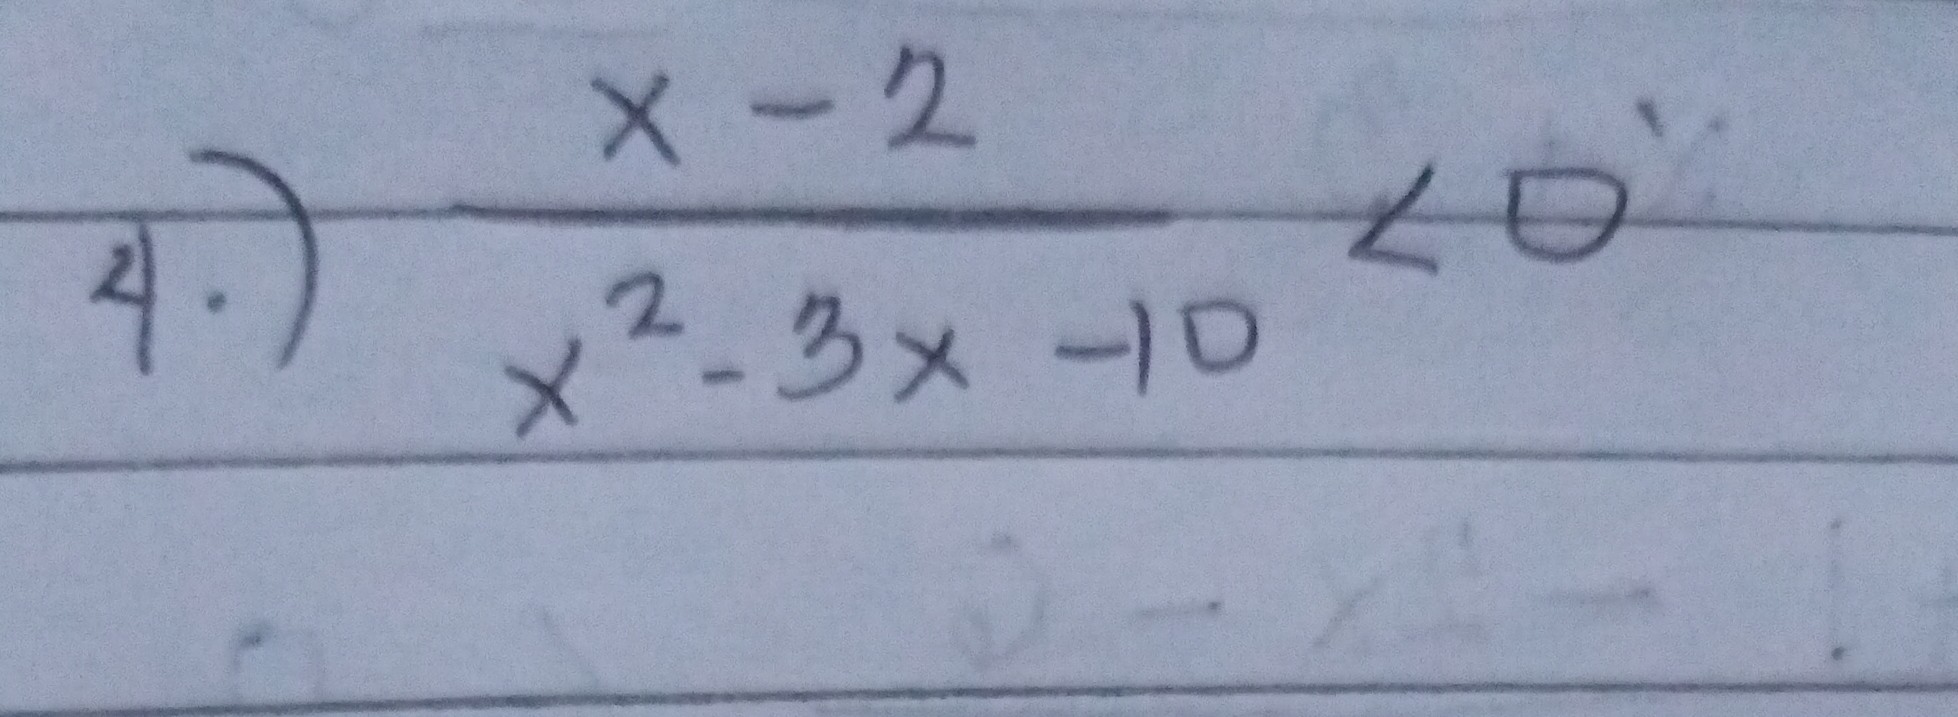 4.) x - 2
x² - 3x - 10 < 0